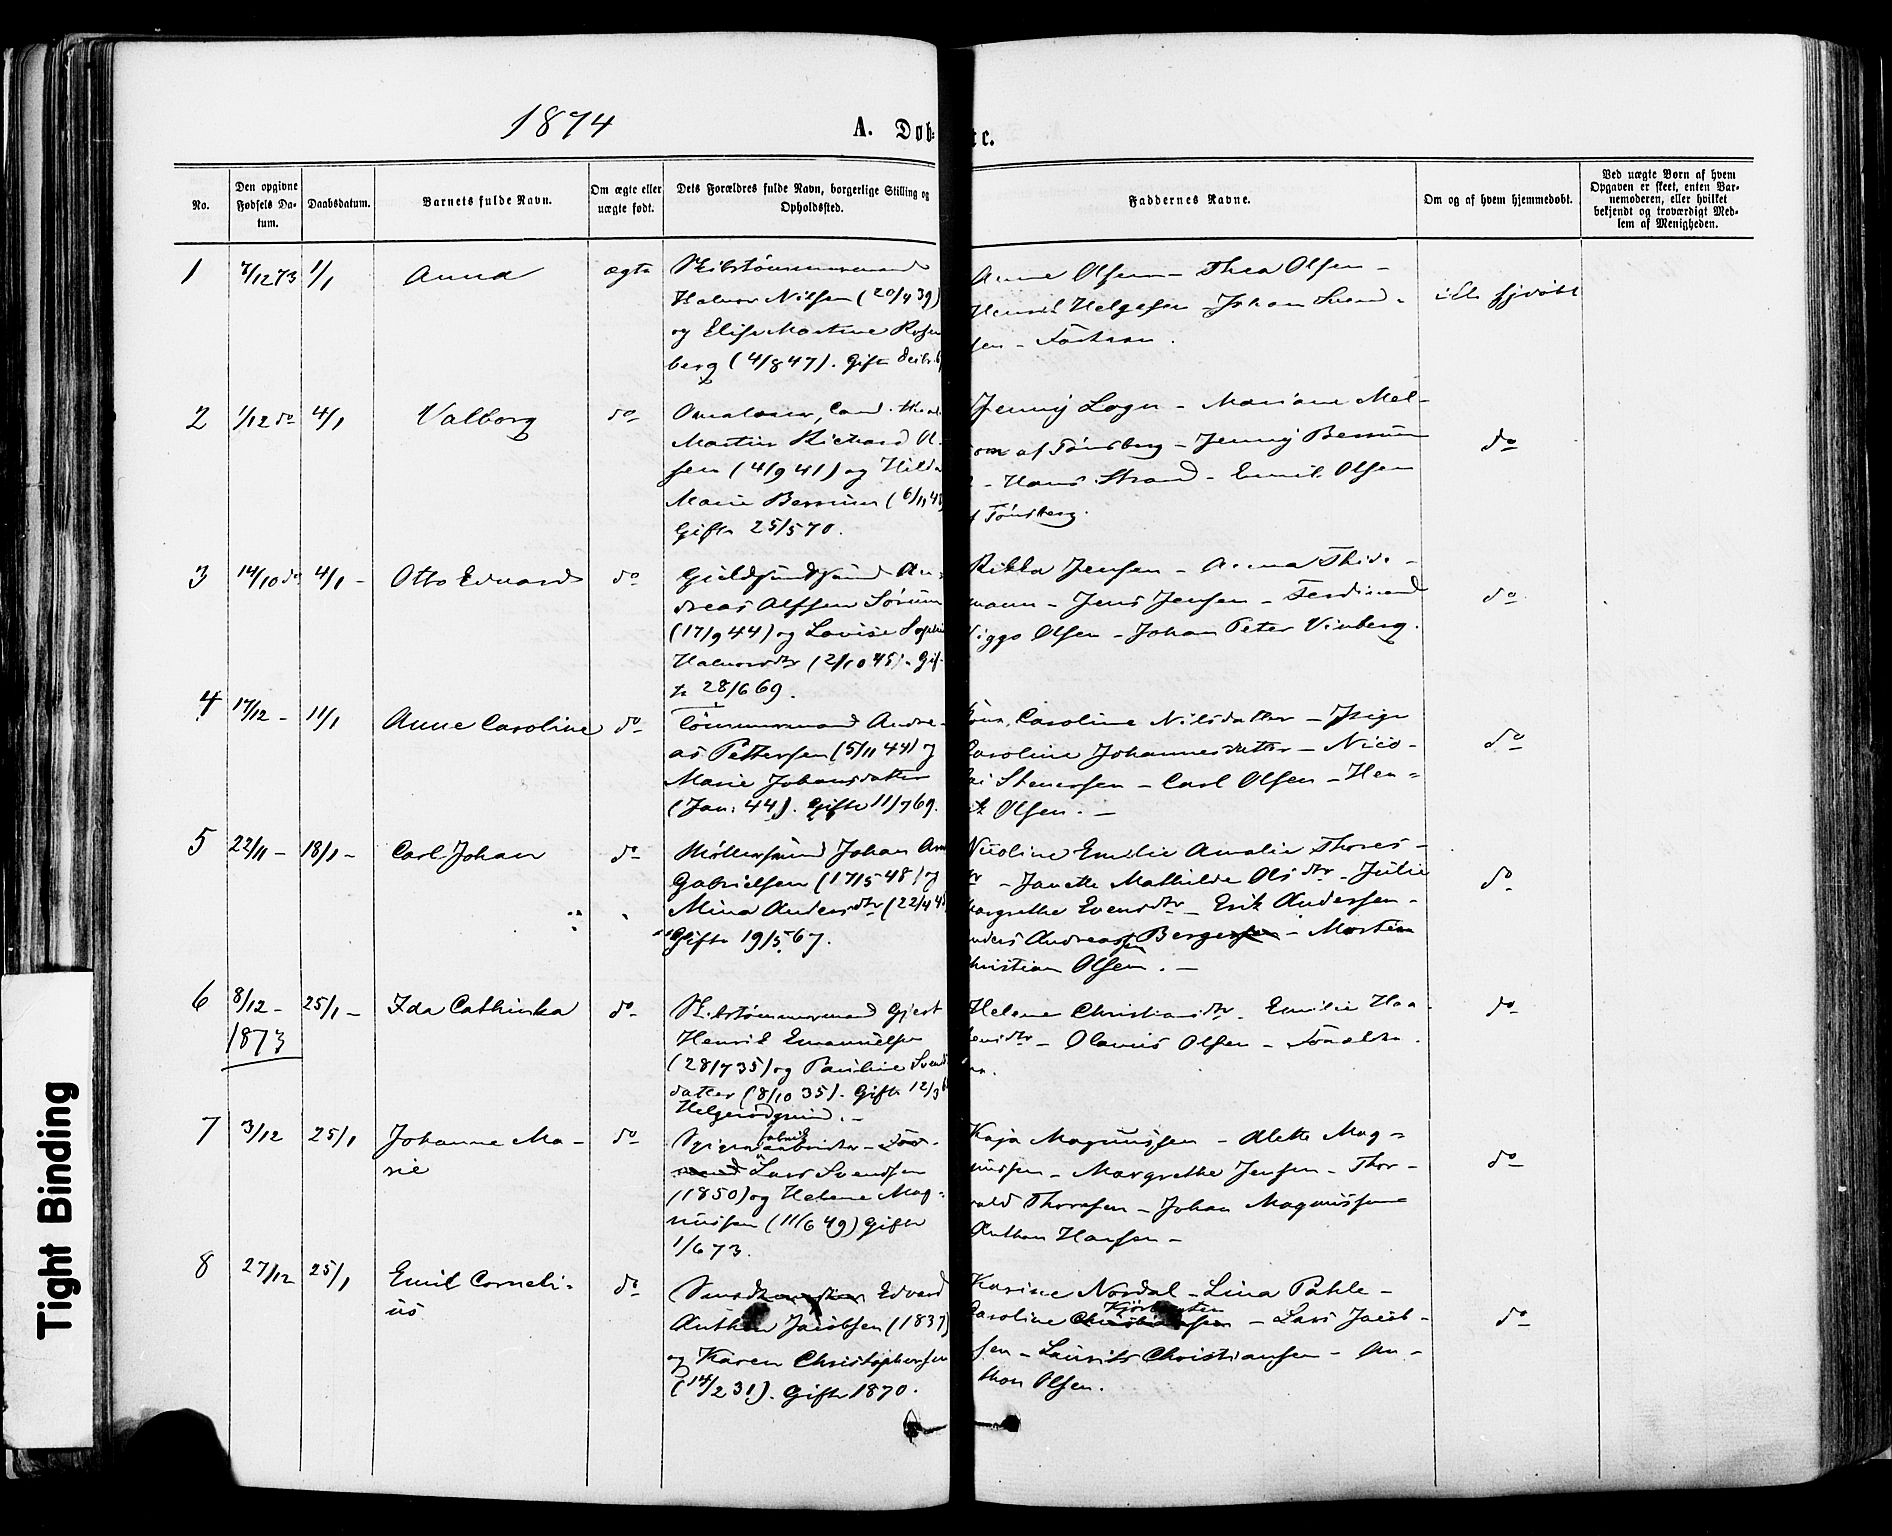 1874
A. Døb-
tc.
No.
Den opgivne Fødsels Datum.
Daabsdatum.
Barnets fulde Navn.
Om ægte eller uægte født.
Dets Forældres fulde Navn, borgerlige Stilling og Opholdssted.
Faddernes Navne.
Om og af hvem hjemmedøbt.
Ved uægte Børn af hvem Opgaven er skeet, enten Barnemoderen, eller hvilket bekjendt og troværdigt Medlem af Menigheden.
1
7/12 73
1/1
Anna
ægte
Skibstømmermand
Halvor Nilsen (20/4 39)
og Elise Martine Rosen
berg (4/8 47). Gifte
Anne Olsen - Thea Olsen -
Henrik Helgesen - Johan Svend-
sen -
hjdøbt
2
1/12 do
4/1
Valborg
do
cand. theol.
Martin Richard Ol
sen (4/9 41) og Hilda
Marie Bessum (6/11 48
Gifte 25/5 70.
Jenny Løgn - Mariane Mel-
som af Tønsberg - Jenny Bessum
- Hans Strand - Emil Olsen
f Tønsberg.
do
3
14/10 do
4/1 -
Otto Eduard
do
An-
dreas Alfsen Sørum
(17/9 44) og Lovise Sophie
Halvorsdtr (2/10 45). Gif-
te 28/6 69.
Rikka Jensen - Anna Thide-
mann - Jens Jensen - Ferdinand
Viggo Olsen - Johan Peter Vinberg.
do
4
17/12 -
11/1
Anne Caroline
do
Tømmermand Andre-
as Pettersen (5/11 44) og
Marie Johansdatter
(Jan: 44). Gifte 11/7 69.
Caroline Nilsdatter -
Caroline Johannesdatter - Nico-
lai Stenersen - Carl Olsen - Hen-
rik Olsen. -
do
5
22/11 -
18/1 -
Carl Johan
do
Møllersvend Johan Arn
Gabrielsen (17/5 48) og
Mina Andersdtr (22/4 48
Gifte 19/5 67.
Nicoline Emilie Amalie Thores-
dtr - Janette Mathilde Olsdtr - Julie
Margrethe Evensdtr - Erik Andersen -
Anders Andreassen Bergersen - Morten
Christian Olsen. -
do
6
8/12 -
1873
25/1 -
Ida Cathinka
do
Skibstømmermand Gjert
Henrik Emanuelsen
(28/7 35) og Pauline Svends
datter (8/10 35). Gifte 12/3 6
Helgerødgrund. -
Helene Christiansdtr. Emilie Haa-
kensdtr - Olavus Olsen - Forældre
ne.
do
7
3/12
25/1
Johanne Ma-
rie
do
fabrik
arbeider -
Lars Svendsen
(1850) og Helene Mag-
nussen (11/6 49) Gifte
1/6 73.
Kaja Magnussen - Alette Mag-
nussen - Margrethe Jensen - Thor-
vald Thoresen - Johan Magnussen
Anthon Hansen -
do
8
27/12
25/1
Emil Corneli-
us
do
Smed Edvard
Anthon Jacobsen (1837)
og Karen Christophersen
(14/2 31). Gifte 1870.
Karine Nordal - Lina Pahle -
Caroline - Lars Jacob-
sen - Laurits Christiansen - An-
thon Olsen.
do
Tight Binding